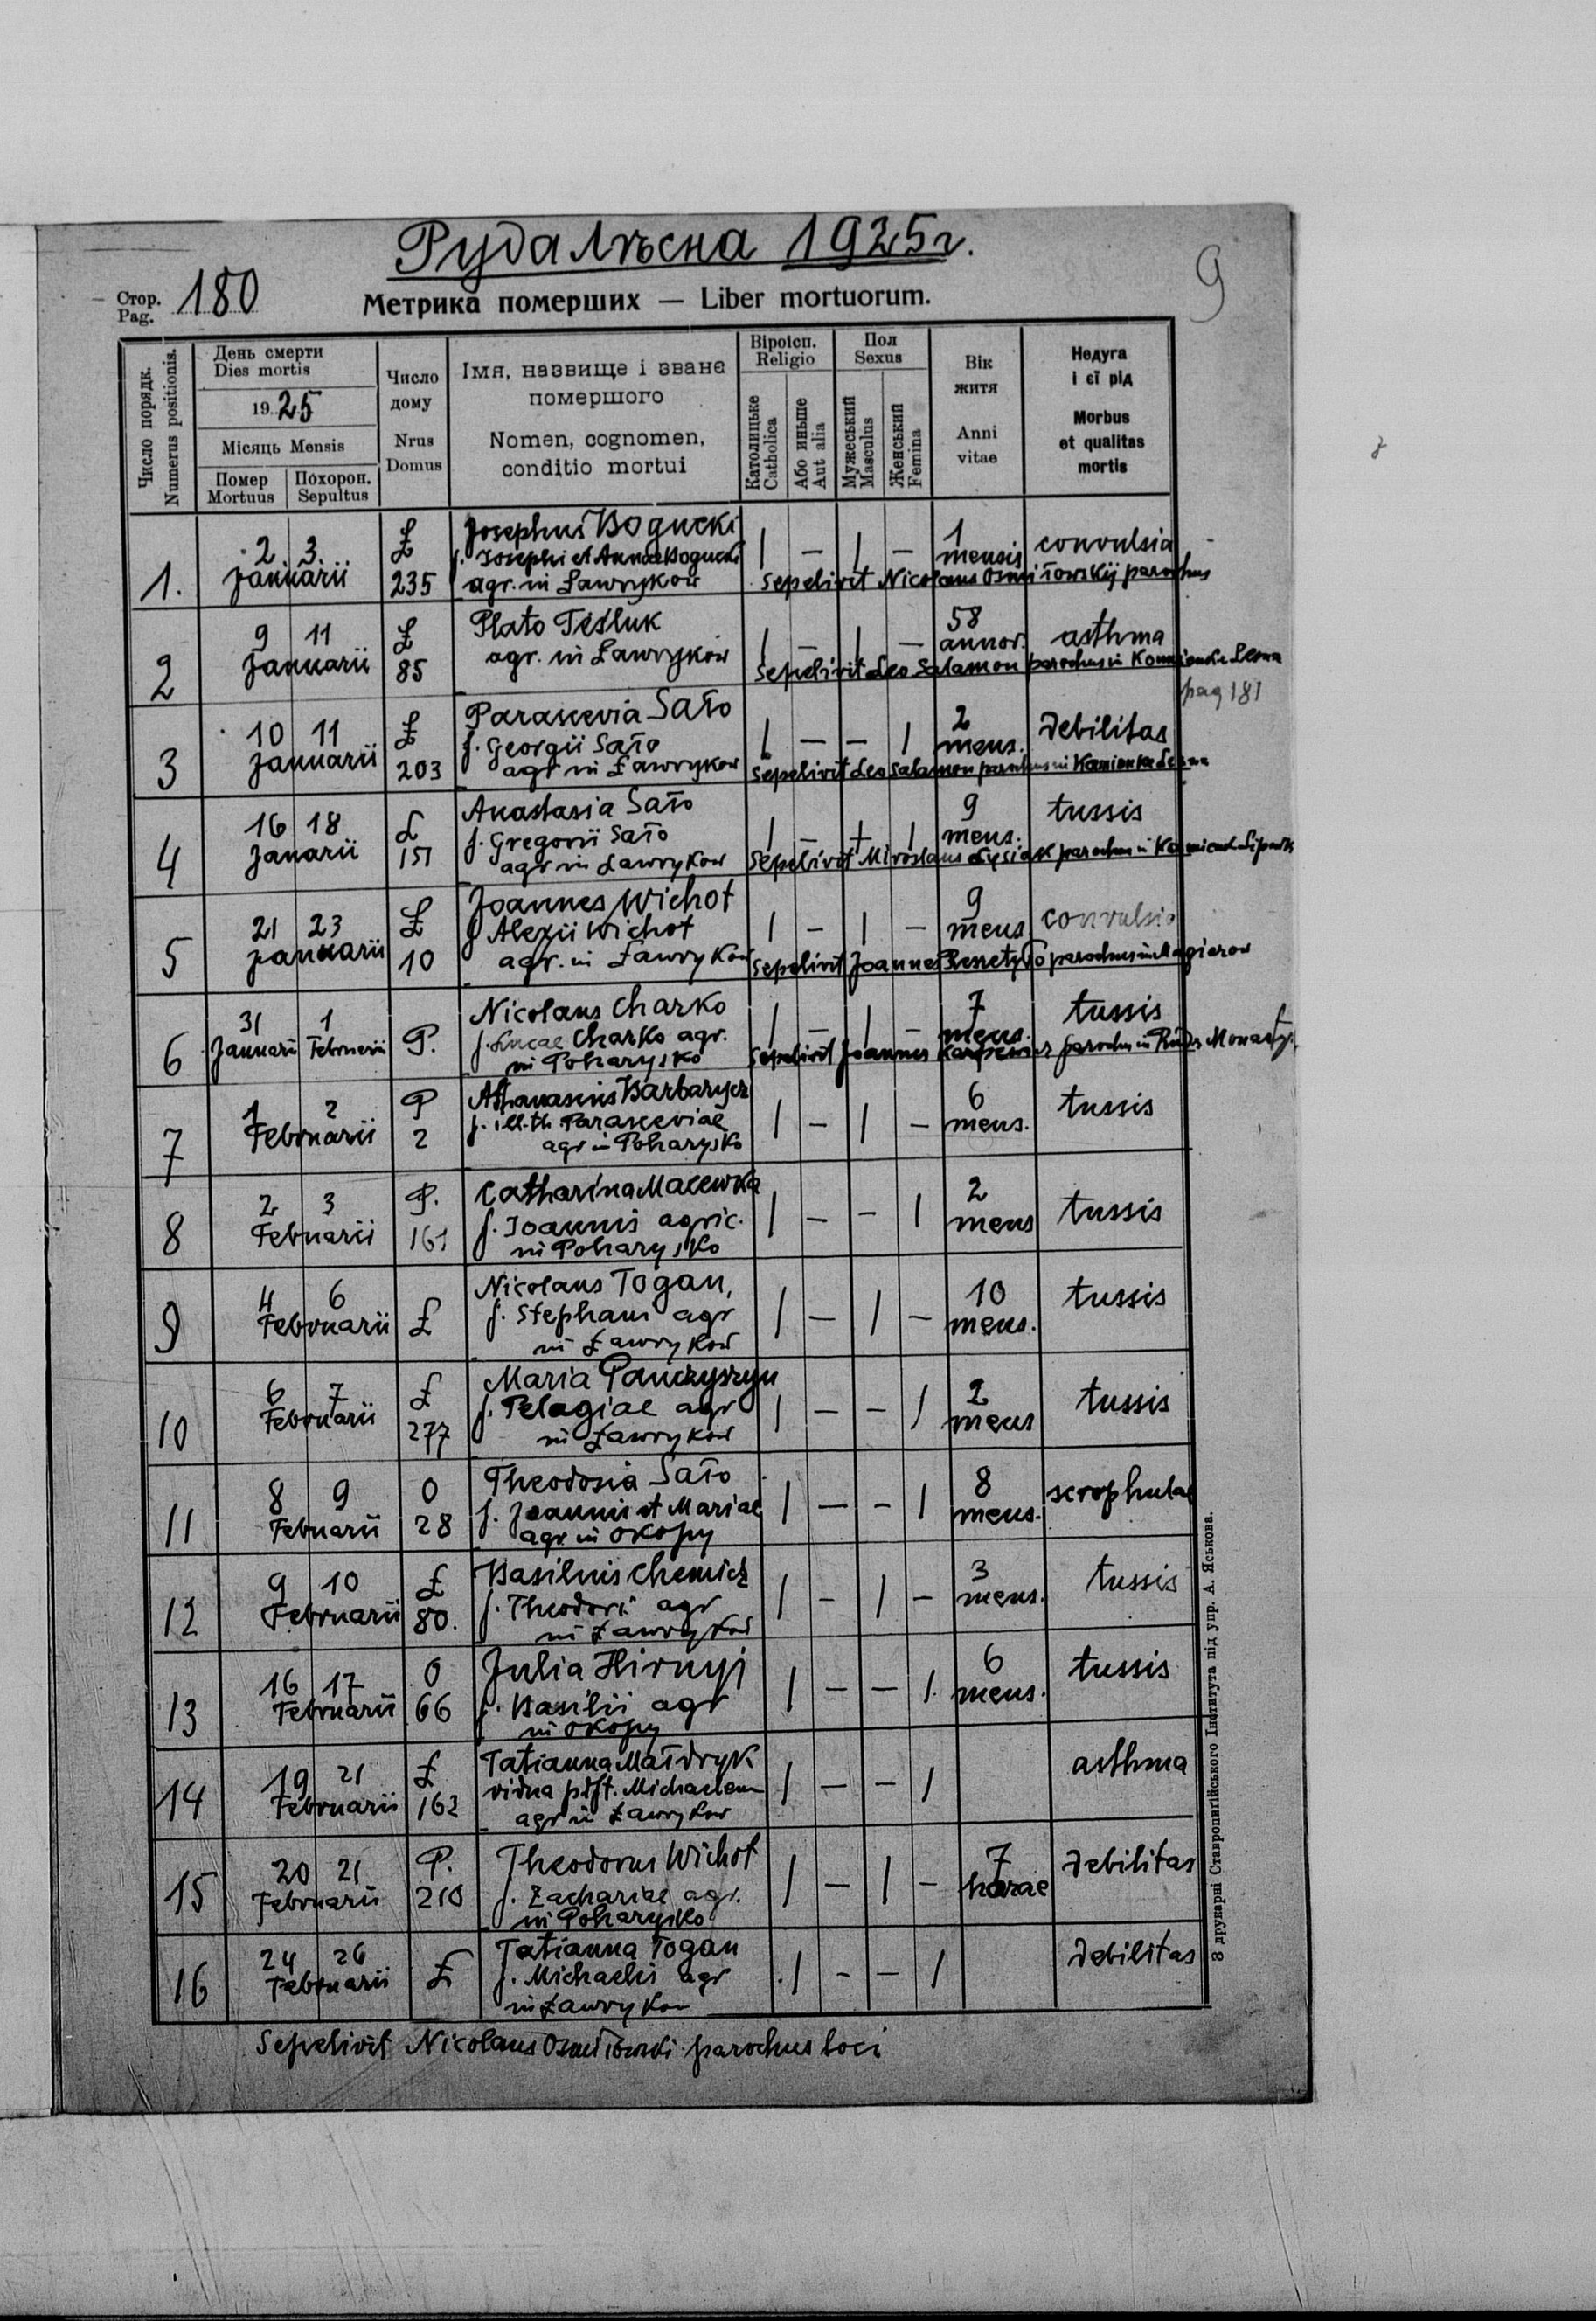 Рудалѣсна 1925г.
9
Стор. 180
Pag.
Метрика померших — Liber mortuorum.
Число порядк.
Numerus positionis.
День смерти
Dies mortis
1925
Місяць Mensis
Помер
Mortuus
Похорон.
Sepultus
Число
дому
Nrus
Domus
Імя, назвище і зване
помершого
Nomen, cognomen,
conditio mortui
Віроісп.
Religio
Католицьке
Catholica
Або иньше
Aut alia
Пол
Sexus
Мужеський
Masculus
Женський
Femina
Вік
житя
Anni
vitae
Недуга
і єї рід
Morbus
et qualitas
mortis
1. 2 3 Januarii Ł 235
Josephus Bogucki
f. Josephi et Annae Bogucki
agr. in Ławryków
1 — 1 — 1 mensis convulsia
Sepelivit Nicolaus Osmiłowskij parochus
2 9 11 Januarii Ł 85
Plato Tesluk
agr. in Ławryków
1 — 1 — 58 annor. asthma
Sepelivit Leo Salamon parochus in Kamionka
pag 181
3 10 11 Januarii Ł 203
Parascevia Sało
f. Georgii Sało
agr in Ławryków
1 — — 1 2 mens. debilitas
Sepelivit Leo Salamon parochus in Kamionka
4 16 18 Januarii Ł 151
Anastasia Sało
f. Gregorii Sało
agr in Ławryków
1 — 1 9 mens. tussis
Sepelivit Miroslaus Łysiak parochus in
5 21 23 Januarii Ł 10
Joannes Wichot
f Alexii Wichot
agr. in Ławryków
1 — 1 — 9 mens convulsio
Sepelivit Joannes parochus in Magierow
6 31 Januarii 1 Februarii P.
Nicolaus Charko
f. Lucae Charko agr.
in Poharysko
1 — 1 — 7 mens. tussis
Sepelivit Joannes parochus in Ruda Monasty.
7 1 2 Februarii P 2
Athanasius Barbarycz
f. ill. th. Parasceviae
agr in Poharysko
1 — 1 — 6 mens. tussis
8 2 3 Februarii P. 161
Catharina Macewka
f. Joannis agric.
in Poharysko
1 — — 1 2 mens tussis
9 4 6 Februarii Ł
Nicolaus Togan,
f. Stephani agr
in Ławryków
1 — 1 — 10 mens. tussis
10 6 7 Februarii Ł 277
Maria Panczyszyn
f. Pelagiae agr
in Ławryków
1 — — 1 2 mens tussis
11 8 9 Februarii O 28
Theodosia Sało
f. Joannis et Mariae
agr in Okopy
1 — — 1 8 mens. scrophulae
12 9 10 Februarii Ł 80.
Basilius Chemicz
f. Theodori agr
in Ławryków
1 — 1 — 3 mens. tussis
13 16 17 Februarii O 66
Julia Hirnyj
f. Basilii agr
in Okopy
1 — — 1. 6 mens. tussis
14 19 21 Februarii Ł 162
Tatianna Małdryk
vidua Michaelem
agr in Ławryków
1 — — 1 asthma
15 20 21 Februarii P. 210
Theodorus Wichot
f. Zachariae agr.
in Poharysko
1 — 1 — 7 horae debilitas
16 24 26 Februarii Ł
Tatianna Togan
f. Michaelis agr
in Ławryków
1 — — 1 debilitas
Sepelivit Nicolaus Osmiłowski parochus loci
З друкарні Ставропигійського Інститута під упр. А. Яськова.